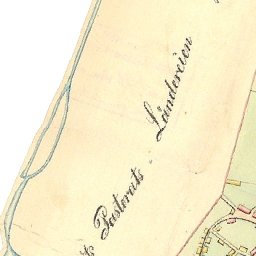 Pastorats Ländereien